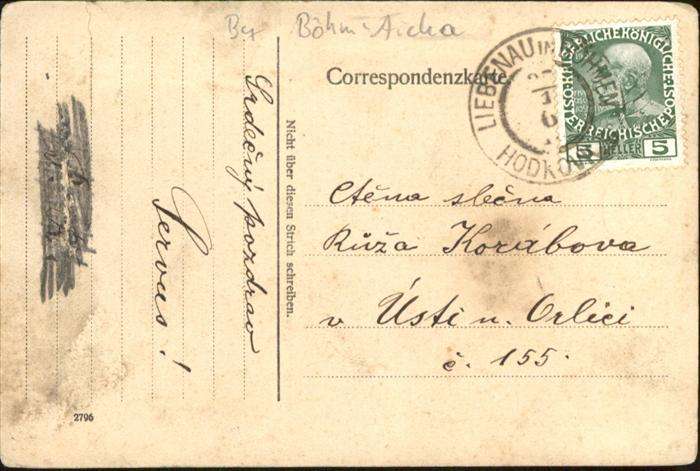 By Böhm-Aicha
Correspondenzkarte
LIEBENAU in BÖHMEN
HODKOV
KAISERLICHE KÖNIGLICHE
ÖSTERREICHISCHE POST
5 HELLER 5
Srdečný pozdrav
Servus!
Nicht über diesen Strich schreiben.
Ctěna slečna
Růža Korábova
v Ústí n. Orlicí
č. 155.
2796